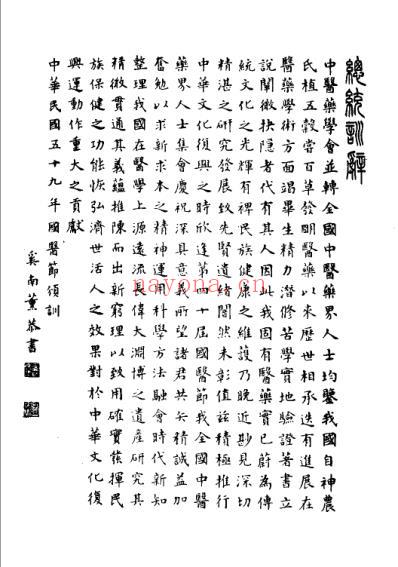 總統訓辭
中醫藥學會並轉全國中醫藥界人士均鑒我國自神農
氏植五穀嘗百草發明醫藥以來歷世相承迭有進展在
醫藥學術方面竭畢生精力潛修苦學實地驗證著書立
說闡微抉隱者代有其人因此我固有醫藥實已蔚為傳
統文化之光輝有裨民族健康之維護乃晚近尠見深切
精湛之研究發展致先賢遺緒闇然未彰值茲積極推行
中華文化復興之時欣逢第四十屆國醫節我全國中醫
藥界人士集會慶祝深具意義所望諸君共矢精誠益加
奮勉以求新求本之精神運用科學方法融會時代新知
整理我國在醫學上源遠流長偉大淵博之遺產研究其
精微貫通其義蘊推陳而出新窮理以致用確實發揮民
族保健之功能恢弘濟世活人之效果對於中華文化復
興運動作重大之貢獻
中華民國五十九年國醫節頌訓
奚南薰恭書
nayona.cn